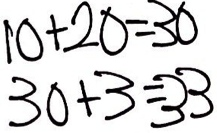 10+20=30
30+3=33